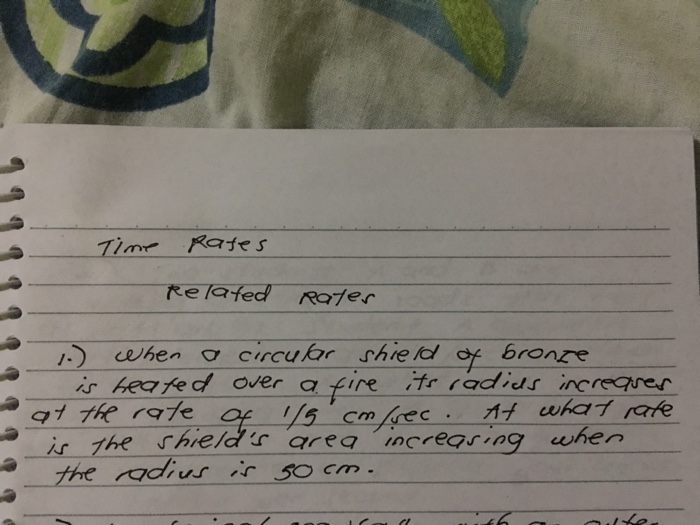 Time Rates
Related Rates
1.) when a circular shield of bronze
is heated over a fire its radius increases
at the rate of 1/5 cm/sec. At what rate
is the shield's area increasing when
the radius is 50 cm.